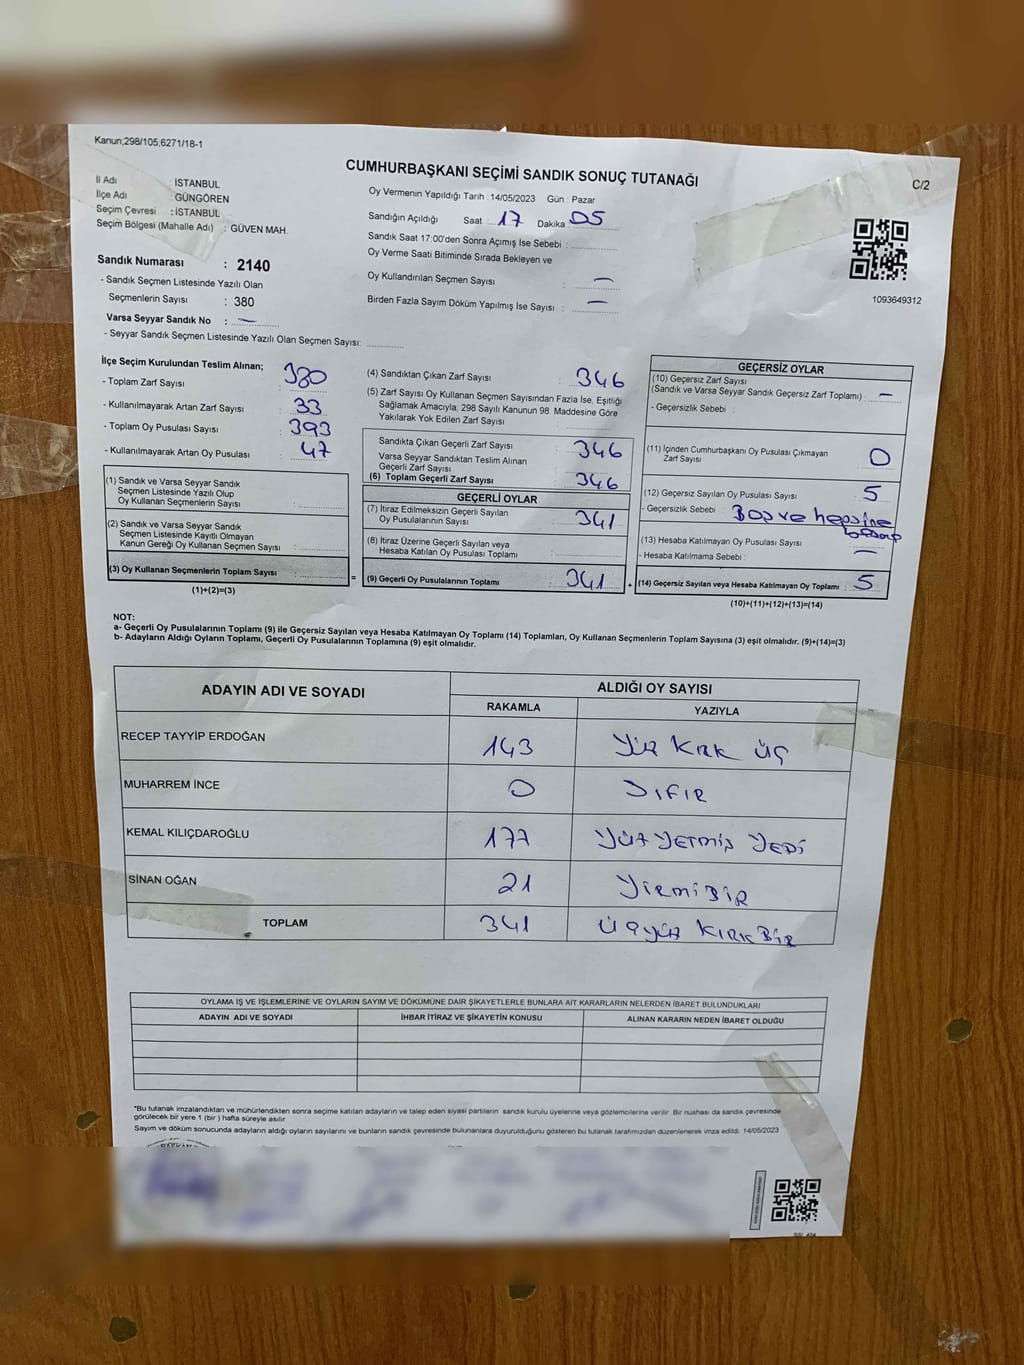 Kanun;298/105;6271/18-1
CUMHURBAŞKANI SEÇİMİ SANDIK SONUÇ TUTANAĞI
C/2
İl Adı : İSTANBUL
İlçe Adı : GÜNGÖREN
Seçim Çevresi : İSTANBUL
Seçim Bölgesi (Mahalle Adı) : GÜVEN MAH.
Sandık Numarası : 2140
- Sandık Seçmen Listesinde Yazılı Olan
Seçmenlerin Sayısı : 380
Varsa Seyyar Sandık No : —
- Seyyar Sandık Seçmen Listesinde Yazılı Olan Seçmen Sayısı:
Oy Vermenin Yapıldığı Tarih : 14/05/2023 Gün : Pazar
Sandığın Açıldığı Saat : 17 Dakika : 05
Sandık Saat 17:00'den Sonra Açımış İse Sebebi :
Oy Verme Saati Bitiminde Sırada Bekleyen ve
Oy Kullandırılan Seçmen Sayısı : —
Birden Fazla Sayım Döküm Yapılmış İse Sayısı : —
1093649312
İlçe Seçim Kurulundan Teslim Alınan;
- Toplam Zarf Sayısı : 380
- Kullanılmayarak Artan Zarf Sayısı : 33
- Toplam Oy Pusulası Sayısı : 393
- Kullanılmayarak Artan Oy Pusulası : 47
(1) Sandık ve Varsa Seyyar Sandık
Seçmen Listesinde Yazılı Olup
Oy Kullanan Seçmenlerin Sayısı :
(2) Sandık ve Varsa Seyyar Sandık
Seçmen Listesinde Kayıtlı Olmayan
Kanun Gereği Oy Kullanan Seçmen Sayısı :
(3) Oy Kullanan Seçmenlerin Toplam Sayısı :
(1)+(2)=(3)
(4) Sandıktan Çıkan Zarf Sayısı : 346
(5) Zarf Sayısı Oy Kullanan Seçmen Sayısından Fazla İse, Eşitliği
Sağlamak Amacıyla; 298 Sayılı Kanunun 98. Maddesine Göre
Yakılarak Yok Edilen Zarf Sayısı :
Sandıkta Çıkan Geçerli Zarf Sayısı : 346
Varsa Seyyar Sandıktan Teslim Alınan
Geçerli Zarf Sayısı :
(6) Toplam Geçerli Zarf Sayısı : 346
GEÇERLİ OYLAR
(7) İtiraz Edilmeksizin Geçerli Sayılan
Oy Pusulalarının Sayısı : 341
(8) İtiraz Üzerine Geçerli Sayılan veya
Hesaba Katılan Oy Pusulası Toplamı :
= (9) Geçerli Oy Pusulalarının Toplamı : 341
GEÇERSİZ OYLAR
(10) Geçersiz Zarf Sayısı
(Sandık ve Varsa Seyyar Sandık Geçersiz Zarf Toplamı) : —
- Geçersizlik Sebebi :
(11) İçinden Cumhurbaşkanı Oy Pusulası Çıkmayan
Zarf Sayısı : 0
(12) Geçersiz Sayılan Oy Pusulası Sayısı : 5
- Geçersizlik Sebebi : Boş ve hepsine
basıp
(13) Hesaba Katılmayan Oy Pusulası Sayısı : —
- Hesaba Katılmama Sebebi :
+ (14) Geçersiz Sayılan veya Hesaba Katılmayan Oy Toplamı : 5
(10)+(11)+(12)+(13)=(14)
NOT:
a- Geçerli Oy Pusulalarının Toplamı (9) ile Geçersiz Sayılan veya Hesaba Katılmayan Oy Toplamı (14) Toplamları, Oy Kullanan Seçmenlerin Toplam Sayısına (3) eşit olmalıdır. (9)+(14)=(3)
b- Adayların Aldığı Oyların Toplamı, Geçerli Oy Pusulalarının Toplamına (9) eşit olmalıdır.
ADAYIN ADI VE SOYADI ALDIĞI OY SAYISI
RAKAMLA YAZIYLA
RECEP TAYYİP ERDOĞAN 143 Yüz Kırk Üç
MUHARREM İNCE 0 SIFIR
KEMAL KILIÇDAROĞLU 177 Yüz Yetmiş Yedi
SİNAN OĞAN 21 Yirmi BİR
TOPLAM 341 Üçyüz KIRK BİR
OYLAMA İŞ VE İŞLEMLERİNE VE OYLARIN SAYIM VE DÖKÜMÜNE DAİR ŞİKAYETLERLE BUNLARA AİT KARARLARIN NELERDEN İBARET BULUNDUKLARI
ADAYIN ADI VE SOYADI İHBAR İTİRAZ VE ŞİKAYETİN KONUSU ALINAN KARARIN NEDEN İBARET OLDUĞU
*Bu tutanak imzalandıktan ve mühürlendikten sonra seçime katılan adayların ve talep eden siyasi partilerin sandık kurulu üyelerine veya gözlemcilerine verilir. Bir nüshası da sandık çevresinde
görülecek bir yere 1 (bir) hafta süreyle asılır.
Sayım ve döküm sonucunda adayların aldığı oyların sayılarını ve bunların sandık çevresinde bulunanlara duyurulduğunu gösteren bu tutanak tarafımızdan düzenlenerek imza edildi. 14/05/2023